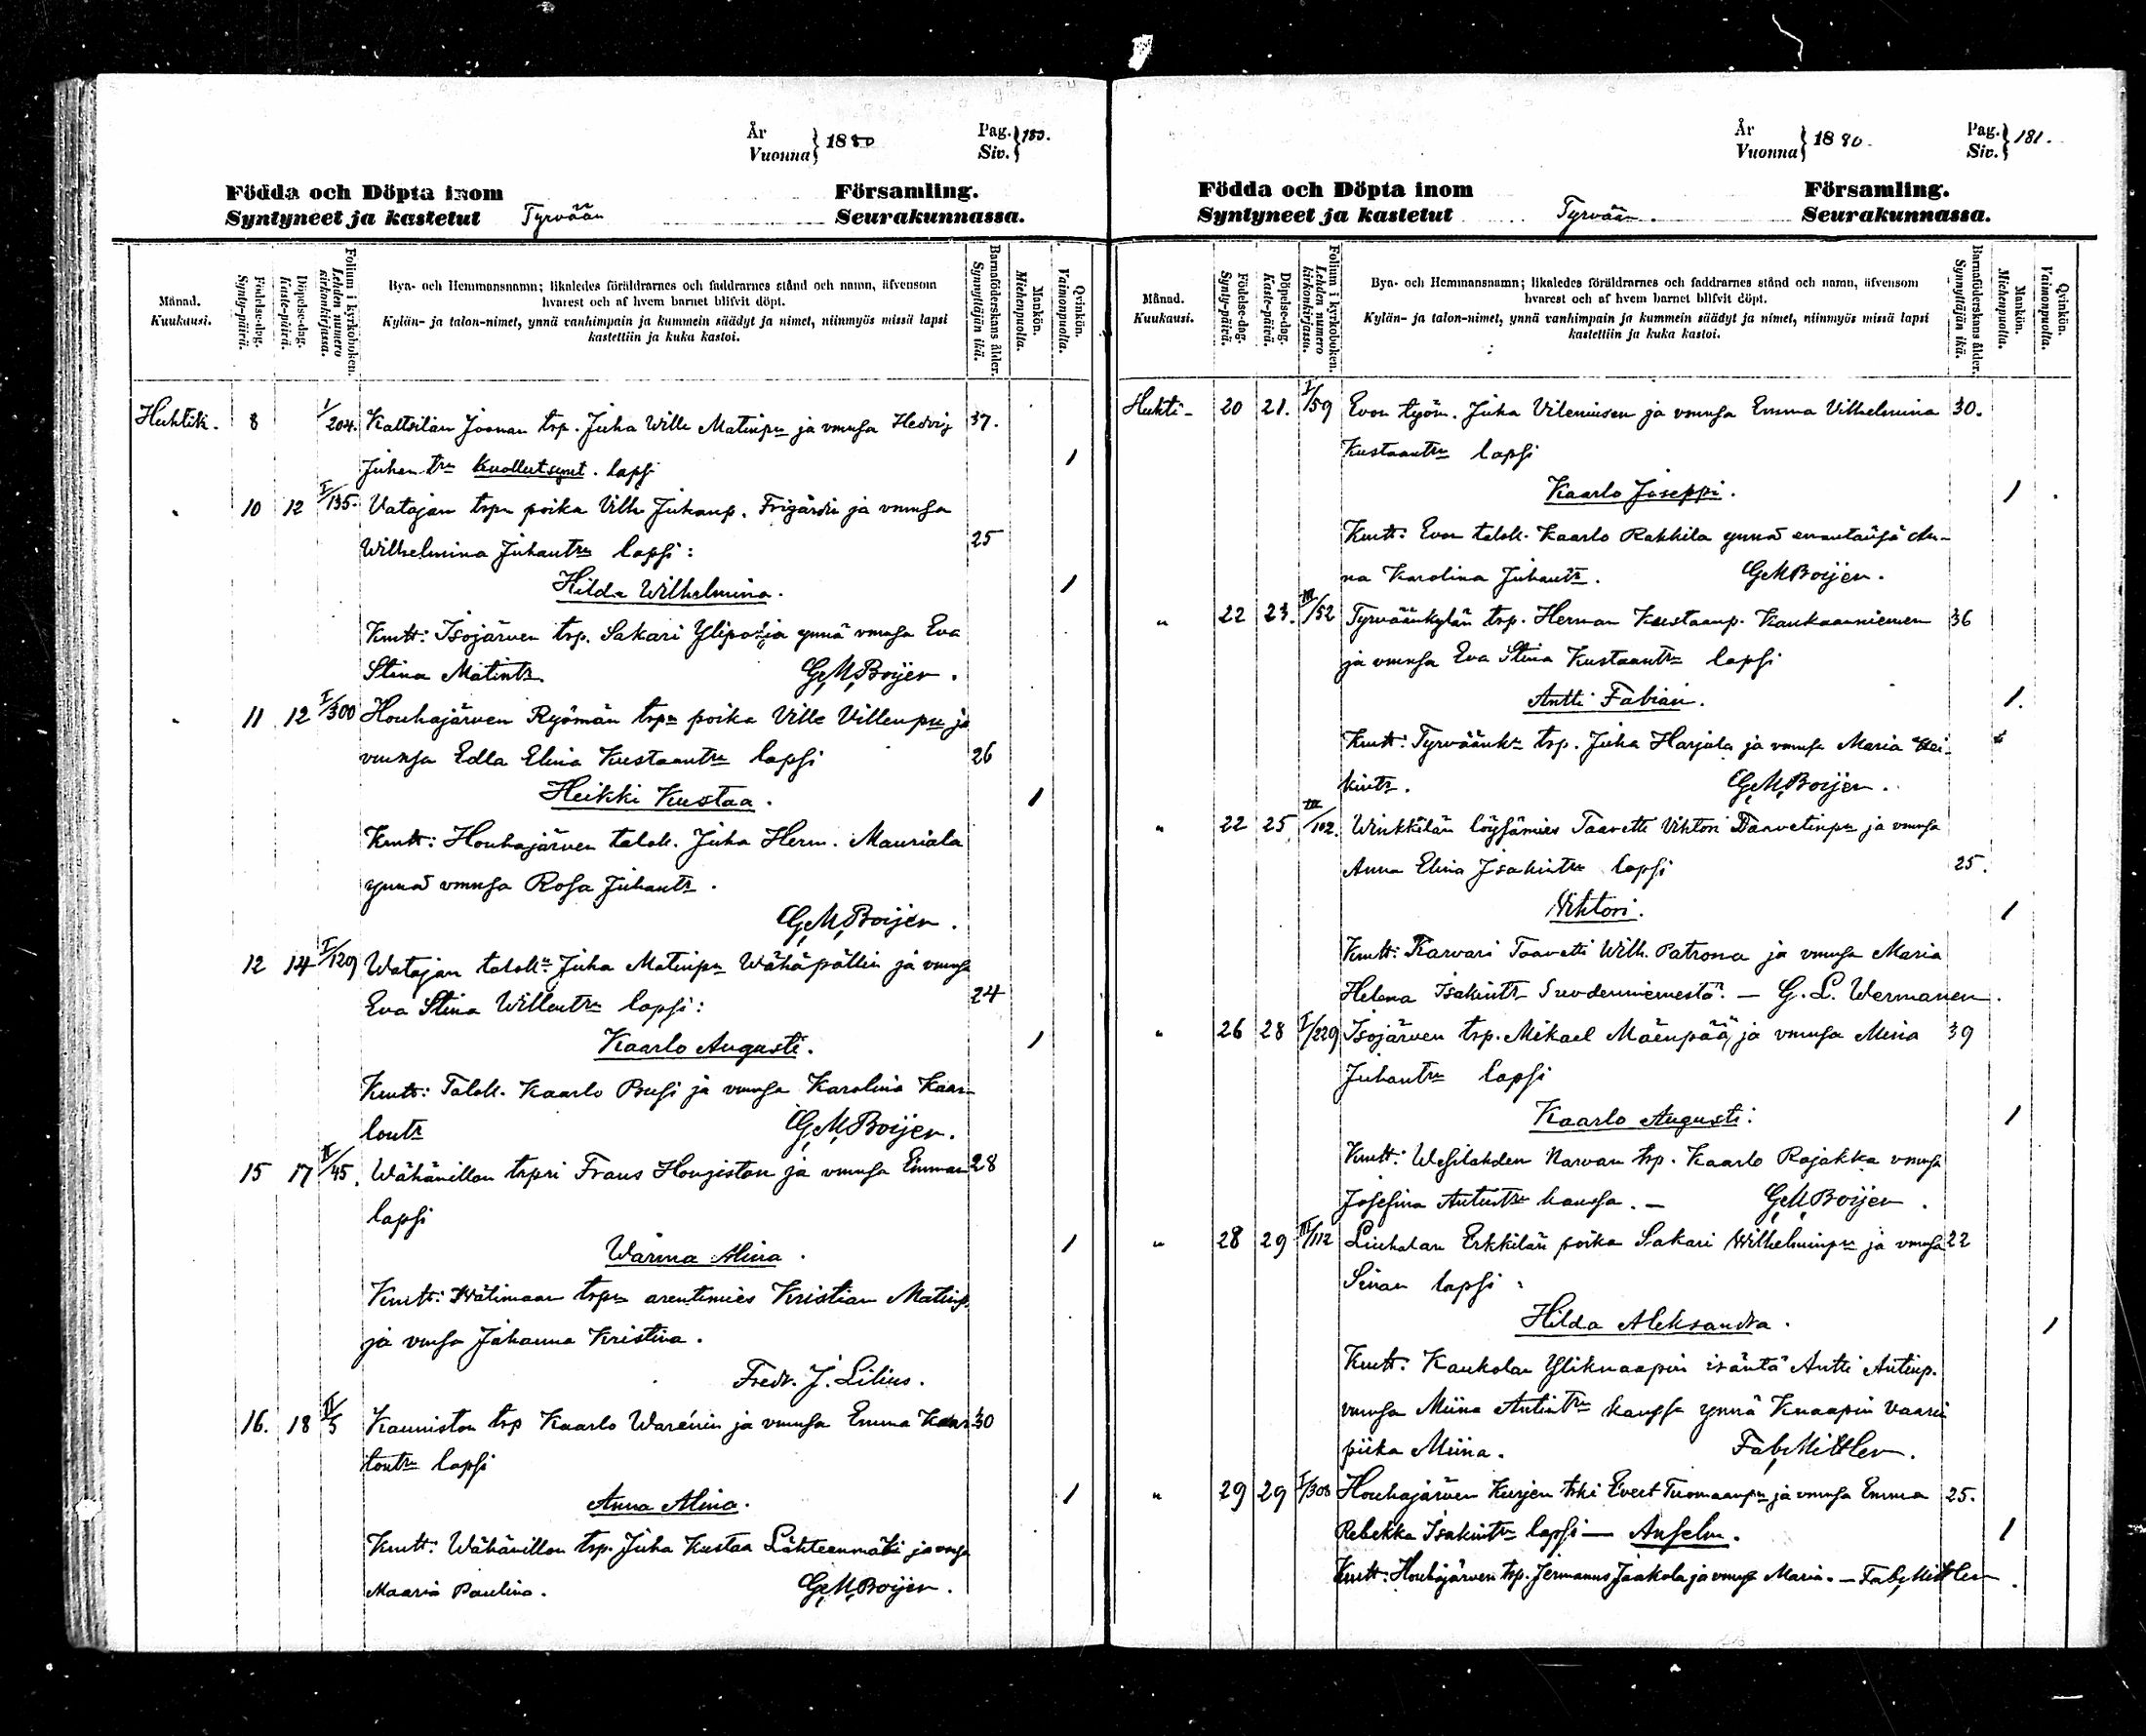 År
Vuonna } 1880
Pag.
Siv. } 180.
Födda och Döpta inom Församling.
Syntyneet ja kastetut Tyrvään Seurakunnassa.
Månad.
Kuukausi.
Födelse-dag.
Synty-päivä.
Döpelse-dag.
Kaste-päivä.
Folium i kyrkoboken.
Lehden numero kirkonkirjassa.
Bya- och Hemmansnamn; likaledes föräldrarnes och faddrarnes stånd och namn, äfvensom
hvarest och af hvem barnet blifvit döpt.
Kylän- ja talon-nimet, ynnä vanhimpain ja kummein säädyt ja nimet, niinmyös missä lapsi
kastettiin ja kuka kastoi.
Barnaföderskans ålder.
Synnyttäjän ikä.
Mankön.
Miehenpuolta.
Qvinkön.
Vaimonpuolta.
Huhtik. 8 I/204. Kaltsilan Joonan trp. Juha Wille Matinpn ja vmnsa Hedvig 37.
Juhan trn kuollut synt. lapsi 1
" 10 12 I/135. Vatajan trpn poika Vilh. Juhanp. Frigårdin ja vmnsa
Wilhelmina Juhantrn lapsi: 25
Hilda Wilhelmina. 1
Kmtt: Isojärven trp. Sakari Ylipohja ynnä vmnsa Eva
Stina Matintr. G. M. Boijer.
" 11 12 I/300 Houhajärven Ryömän trpn poika Ville Villenpn ja
vmnsa Edla Elina Kustaantrn lapsi 26
Heikki Kustaa. 1
Kmtt: Houhajärven talok. Juha Herm. Mauriala
ynnä vmnsa Rosa Juhantr.
G. M. Boijer.
12 14 I/129 Watajan talokn Juha Matinpn Wähäpällin ja vmnsa
Eva Stina Willentrn lapsi: 24
Kaarlo Augusti. 1
Kmtt: Talok. Kaarlo Pusi ja vmnsa Karolina Kaar-
lontr G. M. Boijer.
15 17 II/45. Wähänillon trpri Frans Hongiston ja vmnsa Emman 28
lapsi
Wärma Alina. 1
Kmtt: Wätimaan trpn arentimies Kristian Matinp.
ja vmsa Johanna Kristina.
Fredr. J. Lilius.
16. 18 II/5 Kauniston trp Kaarlo Warénin ja vmnsa Emma Kaar- 30
lontrn lapsi
Anna Alina. 1
Kmtt: Wähänillon trp. Juha Kustaa Lähteenmäki ja vmnsa
Maaria Paulina. G. M. Boijer.
År
Vuonna } 1880.
Pag.
Siv. } 181.
Födda och Döpta inom Församling.
Syntyneet ja kastetut Tyrvään. Seurakunnassa.
Månad.
Kuukausi.
Födelse-dag.
Synty-päivä.
Döpelse-dag.
Kaste-päivä.
Folium i kyrkoboken.
Lehden numero kirkonkirjassa.
Bya- och Hemmansnamn; likaledes föräldrarnes och faddrarnes stånd och namn, äfvensom
hvarest och af hvem barnet blifvit döpt.
Kylän- ja talon-nimet, ynnä vanhimpain ja kummein säädyt ja nimet, niinmyös missä lapsi
kastettiin ja kuka kastoi.
Barnaföderskans ålder.
Synnyttäjän ikä.
Mankön.
Miehenpuolta.
Qvinkön.
Vaimonpuolta.
Huhti- 20 21. I/59 Evon työm. Juha Vileniusen ja vmnsa Emma Vilhelmina 30.
Kustaantrn lapsi
Kaarlo Joseppi. 1
Kmtt: Evon talok. Kaarlo Rakkila ynnä emäntänsä An-
na Karolina Juhantr. G. M. Boijer.
" 22 23. III/52 Tyrväänkylän trp. Herman Kustaanp. Kaukaanniemen 36
ja vmnsa Eva Stina Kustaantrn lapsi
Antti Fabian. 1.
Kmtt: Tyrväänkn trp. Juha Harjula ja vmnsa Maria Hei-
kintr. G. M. Boijer.
" 22 25 III/102. Winkkilän löysämies Taavetti Vihtori Taavetinpn ja vmnsa
Anna Elina Isakintrn lapsi 25.
Vihtori. 1
Kmtt: Karvari Taavetti Wilh. Patrona ja vmnsa Maria
Helena Isakintr Suodenniemestä. — G. L. Wermanen.
" 26 28 I/229 Isojärven trp. Mikael Mäenpään ja vmnsa Miina 39
Juhantrn lapsi
Kaarlo Augusti: 1
Kmtt: Wesilahden Narvan trp. Kaarlo Rajakka vmnsa
Josefina Antintrn kanssa. — G. M. Boijer.
" 28 29 III/112 Liuhalan Erkkilän poika Sakari Wilhelminpn ja vmnsa 22
Sinan lapsi:
Hilda Aleksandra. 1
Kmtt: Kaukolan Yliknaapin isäntä Antti Antinp.
vmnsa Miina Antintrn kanssa ynnä Knaapin vaari
piika Miina. Fab. Mittler.
" 29 29 I/308 Houhajärven Kurjen trki Evert Tuomaanpn ja vmnsa Emma 25.
Rebekka Isakintrn lapsi — Anselm. 1
Kmtt: Houhajärven trp. Jermanus Jaakola ja vmnsa Maria. — Fab. Mittler.